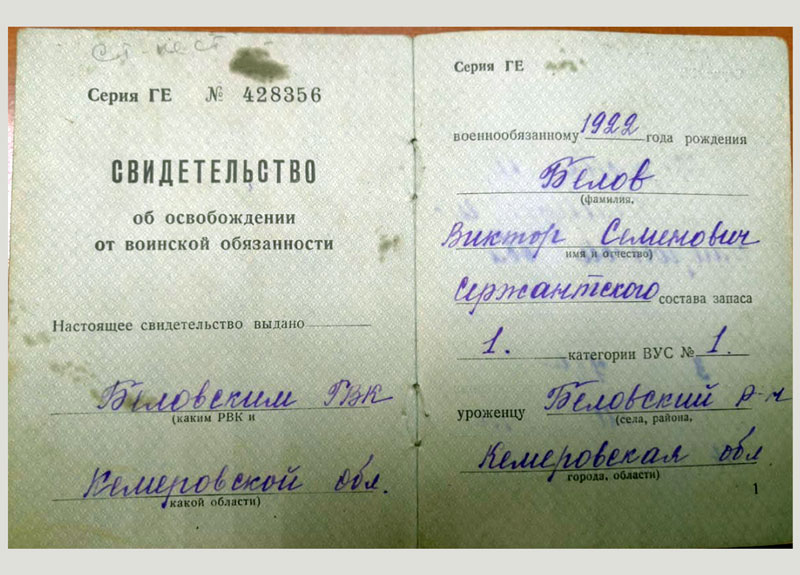 Серия ГЕ № 428356
СВИДЕТЕЛЬСТВО
об освобождении
от воинской обязанности
Настоящее свидетельство выдано
Беловским ГВК
(каким РВК и
Кемеровской обл.
какой области)
Серия ГЕ
военнообязанному 1922 года рождения
Белов
(фамилия,
Виктор Семенович
имя и отчество)
Сержантского состава запаса
1. категории ВУС № 1.
уроженцу Беловский р-н
(села, района,
Кемеровская обл
города, области)
1